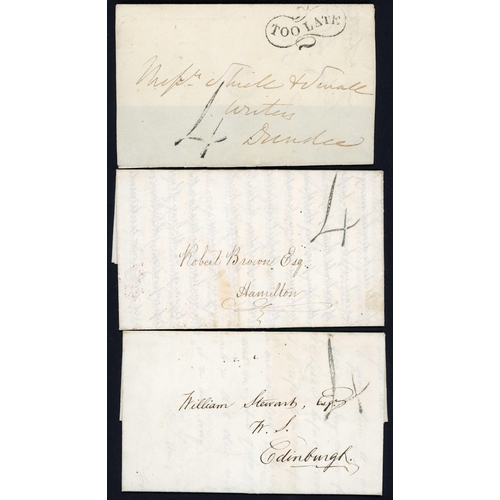 TOO LATE
Messrs Shiell & Small
Writers
Dundee
4
4
Robert Brown Esq.
Hamilton
4
William Stewart, Esqr
W. S.
Edinburgh.